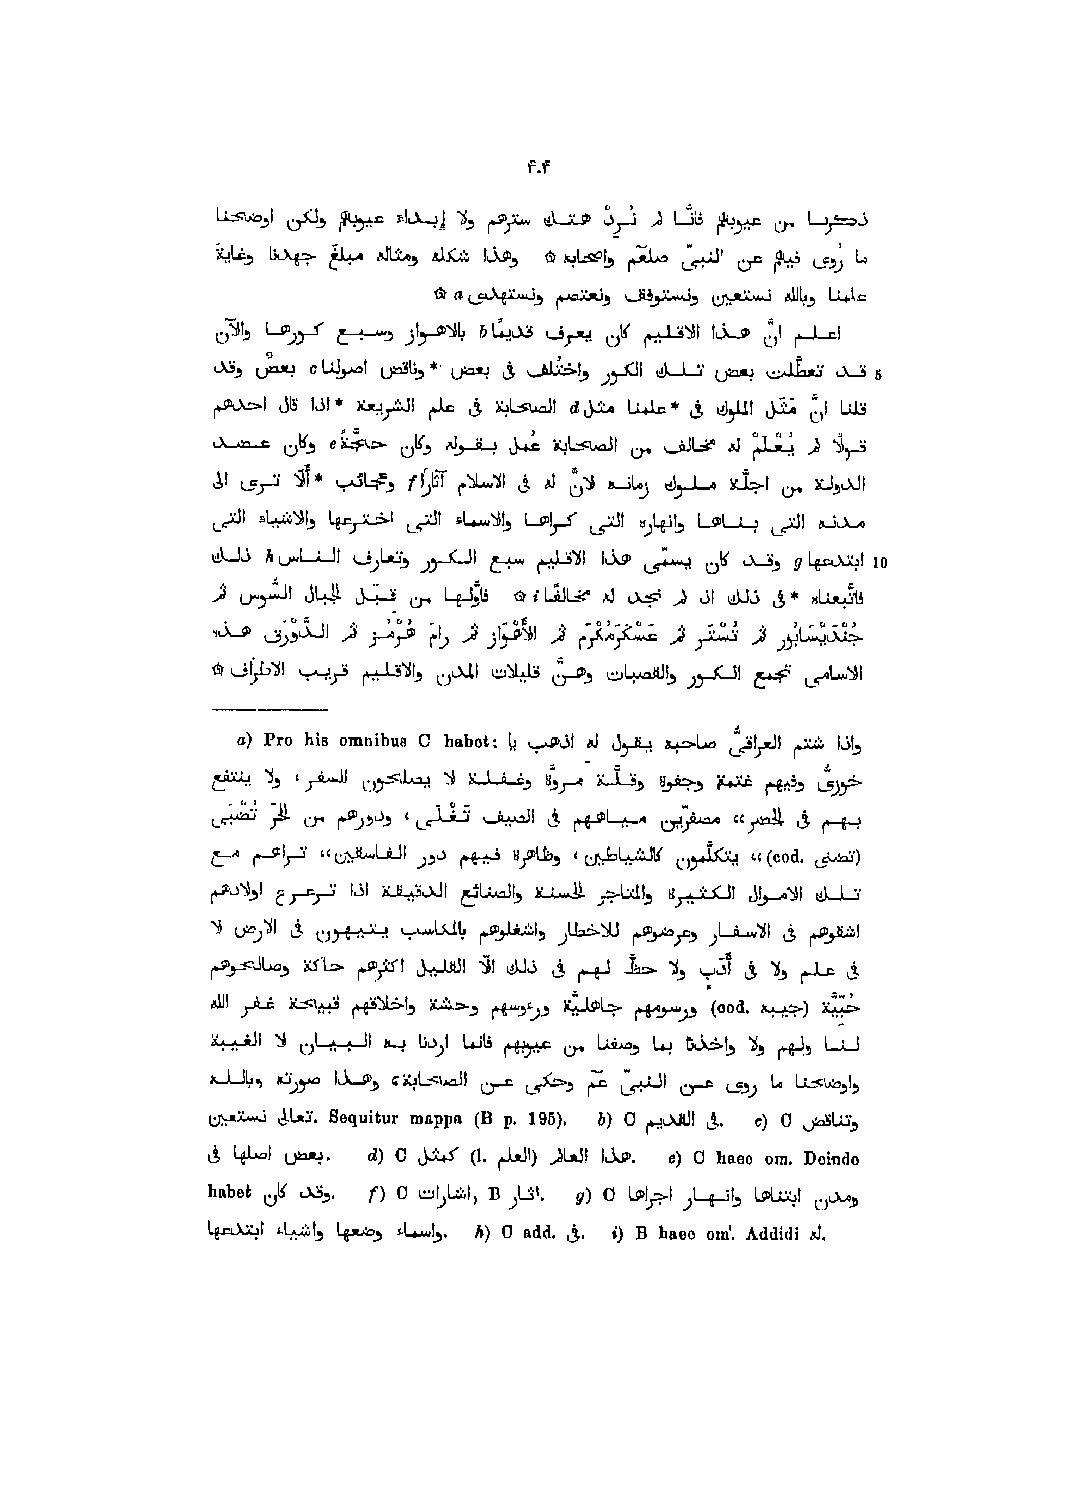 ٤٠٤
ذكرنا من عيوبهم فانّا لم نُرِدْ هتك سترهم ولا إبداء عيوبهم ولكن اوضحنا
ما رُوى فيهم عن النبىّ صلعم واصحابه ۞ وهذا شكله ومثاله مبلغَ جهدنا وغايةَ
علمنا وبالله نستعين ونستوفق ونعتصم ونستهدى a ۞
اعلم انّ هذا الاقليم كان يعرف قديمًا b بالاهواز وسبع كورها والآن
5 قد تعطّلت بعض تلك الكور واختُلف فى بعض *وناقض اصولنا c بعضٌ وقد
قلنا انّ مَثَل الملوك فى *علمنا مثل d الصحابة فى علم الشريعة *اذا قال احدهم
قولًا لم يُعْلَمْ له مخالف من الصحابة عُمل بقوله وكان حُجَّةً e وكان عضد
الدولة من اجلّة ملوك زمانه لانّ له فى الاسلام آثارًا f وعجائب *ألا ترى الى
مدنه التى بناها وانهاره التى كراها والاسماء التى اخترعها والاشياء التى
10 ابتدعها g وقد كان يسمّى هذا الاقليم سبع الكور وتعارف الناس h ذلك
فاتّبعناه *فى ذلك اذ لم نجد له مخالفًا i ۞ فاوّلها من قِبَل الجبال السُّوس ثم
جُنْدَيْسَابُور ثم تُسْتَر ثم عَسْكَرمُكْرَم ثم الأَهْوَاز ثم رامَ هُرْمُز ثم الدَّوْرَق هذه
الاسامى تجمع الكور والقصبات وهنّ قليلات المدن والاقليم قريب الاطراف ۞
a) Pro his omnibus C habet: واذا شتم العراقىُّ صاحبه يقول له اذهب يا
خوزىُّ وفيهم غتمة وجفوة وقلّة مروّة وغفلة لا يصلحون للسفر، ولا ينتفع
بهم فى الحضر“ مصفرّين مياههم فى الصيف تَغْلى، ودورهم من الحَرّ تُضْبَى
(cod. تضنى) “ يتكلّمون كالشياطين، وظاهرة فيهم دور الفاسقين“ تراهم مع
تلك الاموال الكثيرة والمتاجر الحسنة والصنائع الدقيقة اذا ترعرع اولادهم
اشقوهم فى الاسفار وعرضوهم للاخطار واشغلوهم بالمكاسب يتيهون فى الارض لا
فى علم ولا فى أَدَب ولا حظَّ لهم فى ذلك الّا القليل اكثرهم حاكة وصالحوهم
حُبِّيَّة (cod. جيبه) ورسومهم جاهليَّة ورءوسهم وحشة واخلاقهم قبيحة غفر الله
لنا ولهم ولا واخذنا بما وصفنا من عيوبهم فانما اردنا به البيان لا الغيبة
واوضحنا ما روى عن النبىّ عَم وحكى عن الصحابة، وهذا صورته وبالله
تعالى نستعين. Sequitur mappa (B p. 195). b) C فى القديم. c) C وتناقض
بعض اصلها فى. d) C كمثل (l. العلم) هذا العالم. e) C haec om. Deinde
habet وقد كان. f) C اشارات, B اثار. g) C ومدن ابتناها وانهار اجراها
واسماء وضعها واشياء ابتدعها. h) C add. فى. i) B haec om. Addidi له.